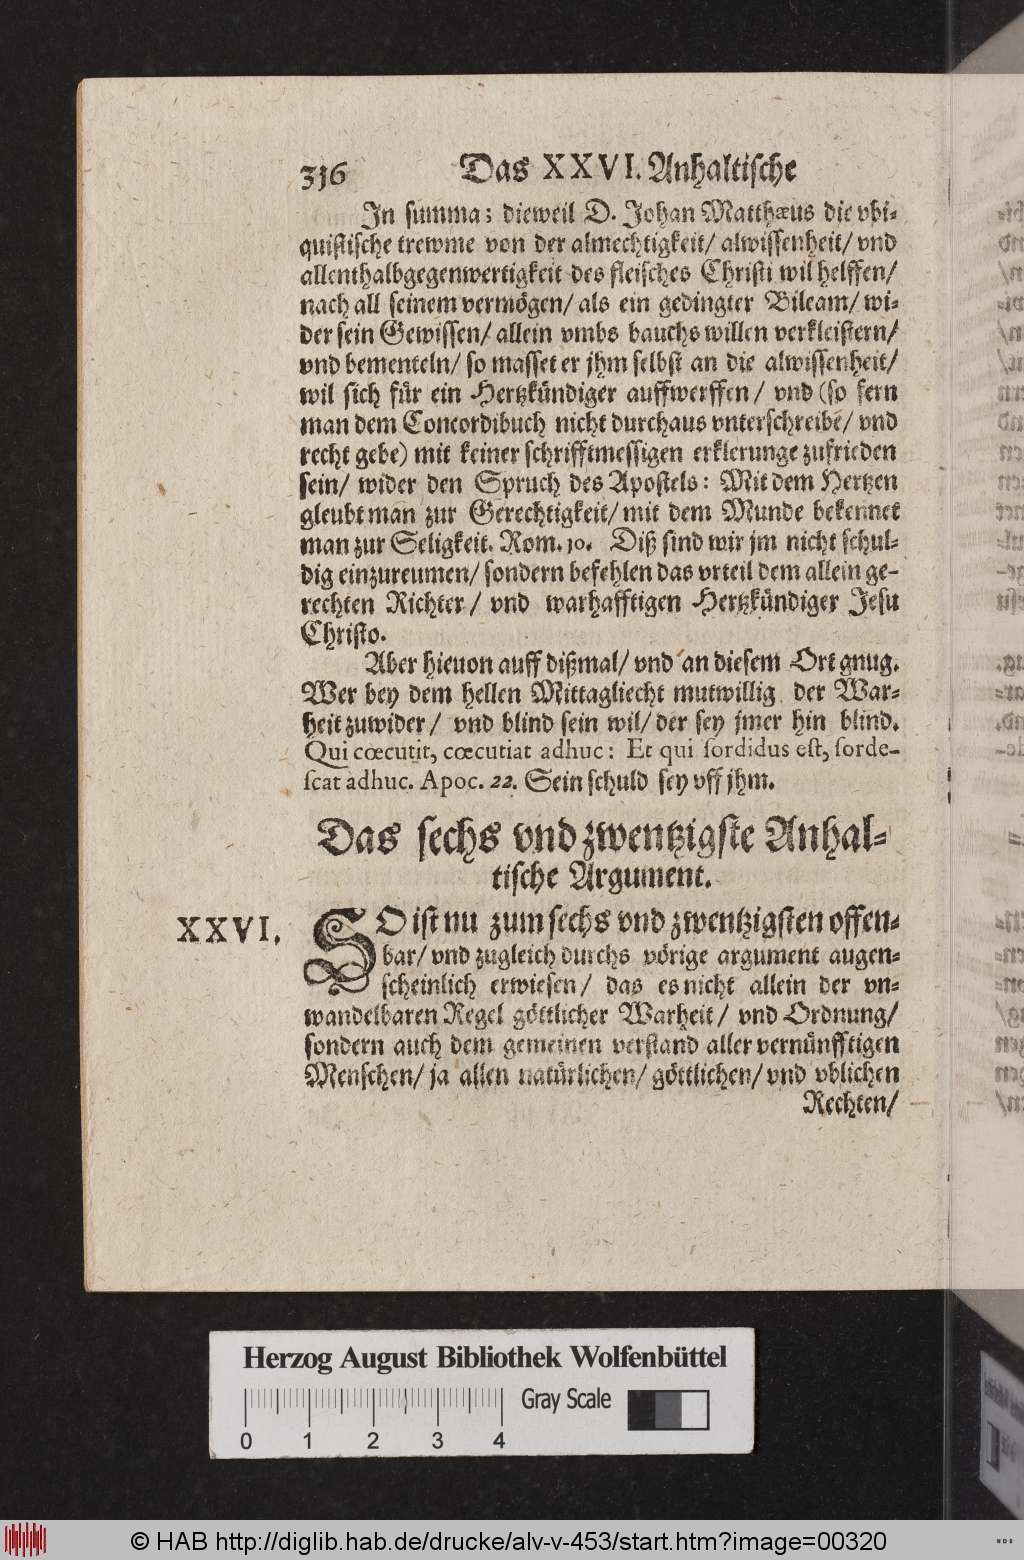 316 Das XXVI. Anhaltische
In summa; dieweil D. Johan Matthæus die vbi-
quistische trewme von der almechtigkeit/ alwissenheit/ vnd
allenthalbgegenwertigkeit des fleisches Christi wil helffen/
nach all seinem vermögen/ als ein gedingter Bileam/ wi-
der sein Gewissen/ allein vmbs bauchs willen verkleistern/
vnd bementeln/ so masset er jhm selbst an die alwissenheit/
wil sich für ein Hertzkündiger auffwerffen/ vnd (so fern
man dem Concordibuch nicht durchaus vnterschreibe/ vnd
recht gebe) mit keiner schrifftmessigen erklerunge zufrieden
sein/ wider den Spruch des Apostels: Mit dem Hertzen
gleubt man zur Gerechtigkeit/ mit dem Munde bekennet
man zur Seligkeit. Rom. 10. Diß sind wir jm nicht schul-
dig einzureumen/ sondern befehlen das vrteil dem allein ge-
rechten Richter/ vnd warhafftigen Hertzkündiger Jesu
Christo.
Aber hieuon auff dißmal/ vnd an diesem Ort gnug.
Wer bey dem hellen Mittagliecht mutwillig der War-
heit zuwider/ vnd blind sein wil/ der sey jmer hin blind.
Qui cœcutit, cœcutiat adhuc: Et qui sordidus est, sorde-
scat adhuc. Apoc. 22. Sein schuld sey vff jhm.
Das sechs vnd zwentzigste Anhal-
tische Argument.
XXVI. SO ist nu zum sechs vnd zwentzigsten offen-
bar/ vnd zugleich durchs vörige argument augen-
scheinlich erwiesen/ das es nicht allein der vn-
wandelbaren Regel göttlicher Warheit/ vnd Ordnung/
sondern auch dem gemeinen verstand aller vernünfftigen
Menschen/ ja allen natürlichen/ göttlichen/ vnd vblichen
Rechten/
Herzog August Bibliothek Wolfenbüttel
Gray Scale
0 1 2 3 4
© HAB http://diglib.hab.de/drucke/alv-v-453/start.htm?image=00320